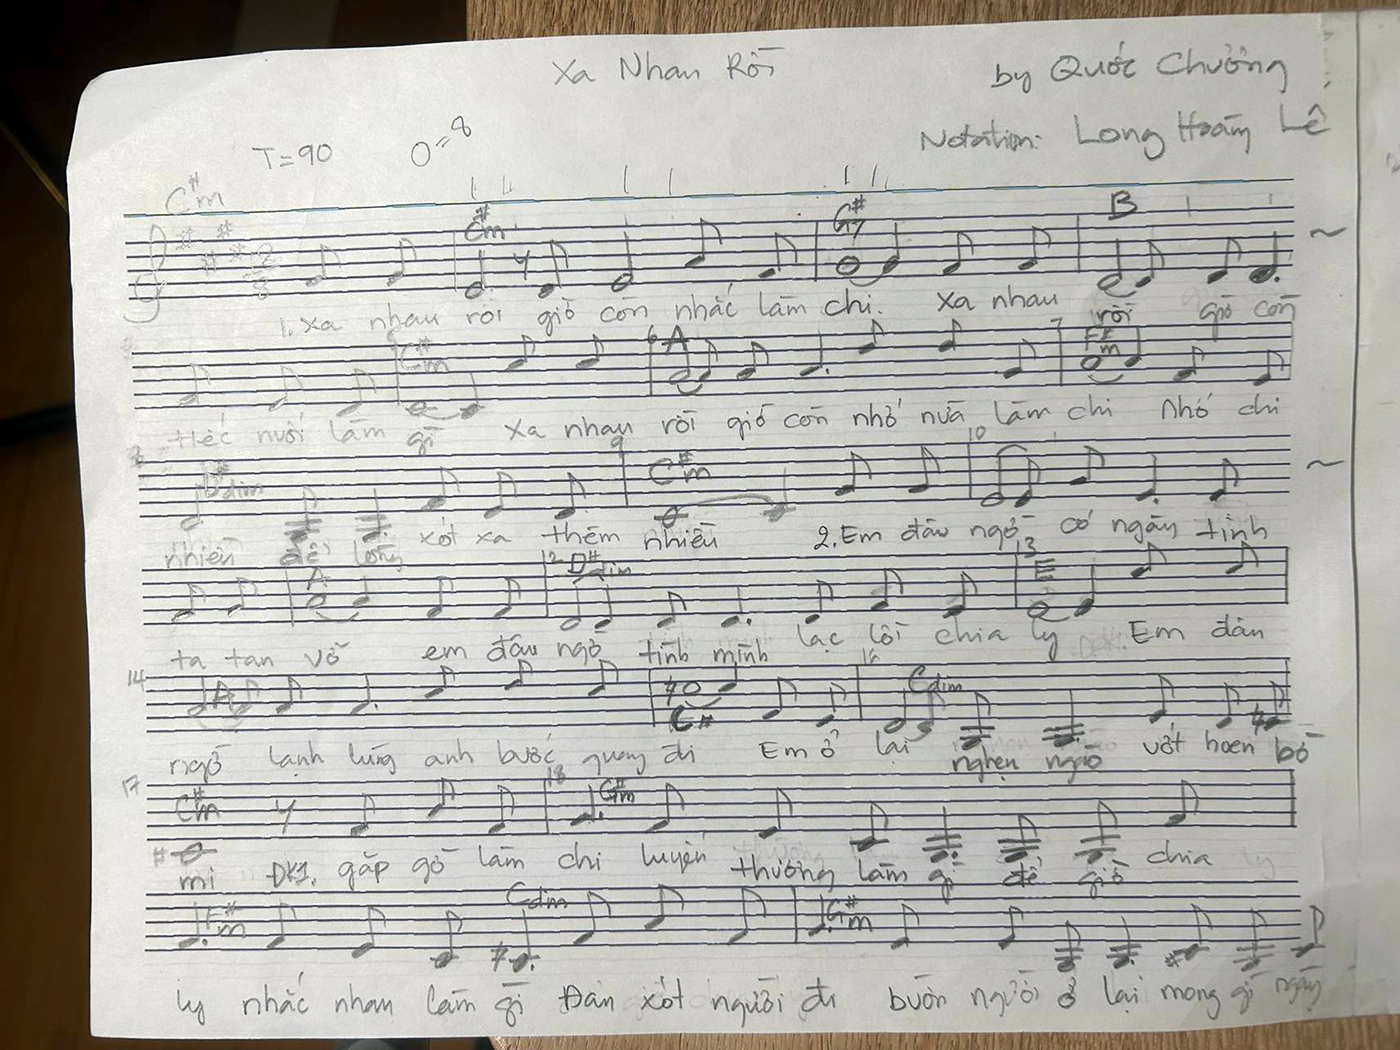 Xa Nhau Rồi
by Quốc Chưởng
Notation: Long Hoàng Lê
T=90 O=8
C#m
C#m G#7 B
1. Xa nhau rồi giờ còn nhắc làm chi. Xa nhau rồi giờ còn
C#m 6 A 7 F#m
tiếc nuối làm gì Xa nhau rồi giờ còn nhớ nữa làm chi Nhớ chi
8 D#dim 9 C#m 10
nhiều để lòng xót xa thêm nhiều 2. Em đâu ngờ có ngày tình
A 12 D#dim 13 E
ta tan vỡ em đâu ngờ tình mình lạc lối chia ly Em đâu
14 A C# 16 Cdim
ngờ lạnh lùng anh bước quay đi Em ở lại nghẹn ngào vớt hoen bờ
17 C#m 18 G#m
mi ĐK1. gặp gỡ làm chi luyến thương làm gì để giờ chia
F#m Cdim G#m
ly nhắc nhau làm gì Đan xót người đi buồn người ở lại mong gì ngày